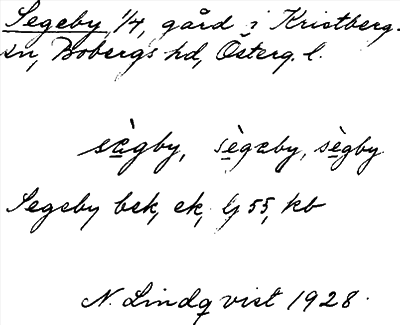 Segeby 1/4, gård i Kristberg.
sn, Bobergs hd, Österg. l.
sègby, sègeby, sègby
Segeby bek, ek, lj 55, kb
N. Lindqvist 1928.